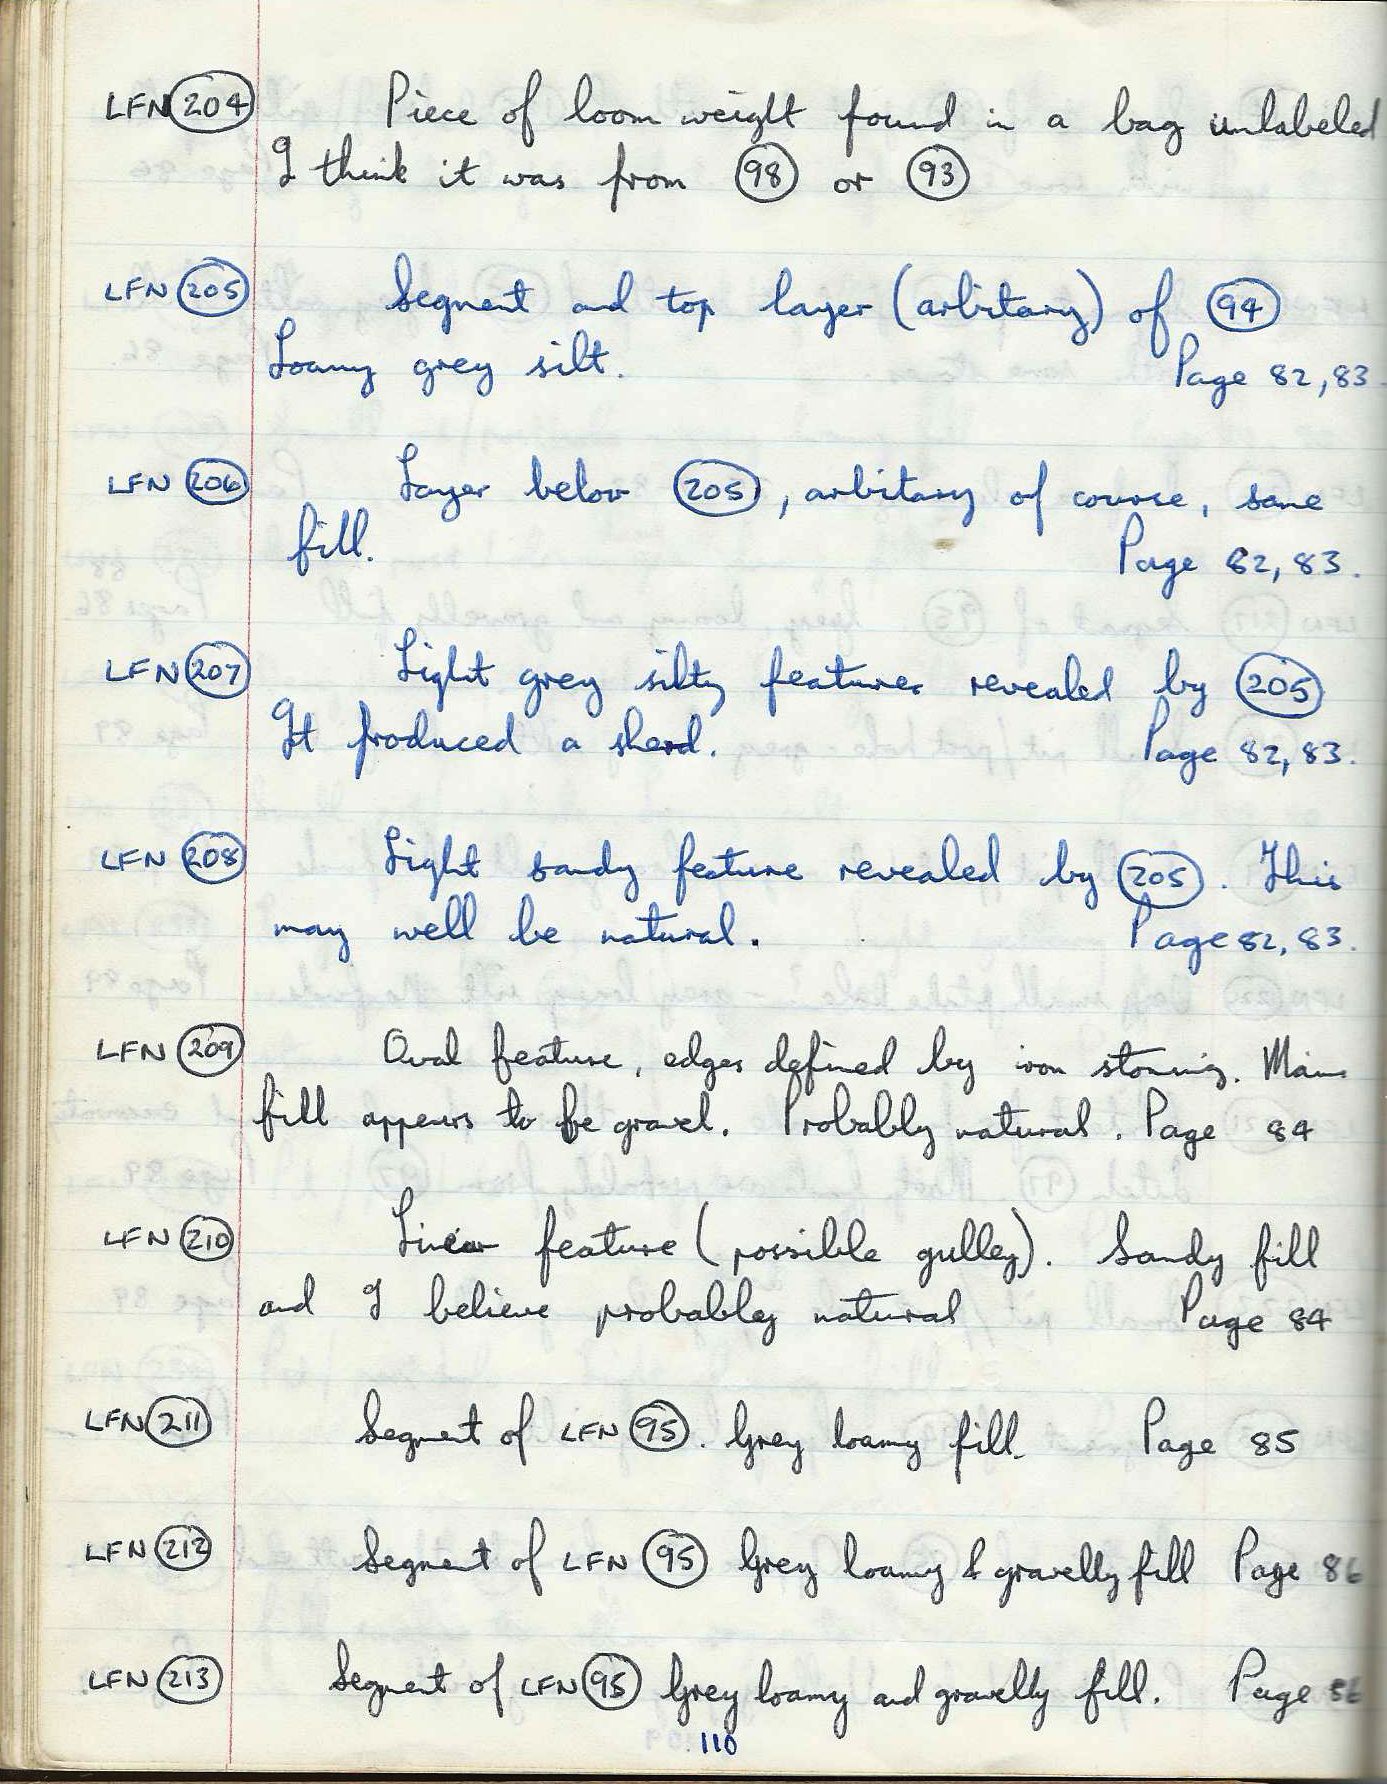 LFN 204 Piece of loom weight found in a bag unlabeled
I think it was from 98 or 93
LFN 205 Segment and top layer (arbitary) of 94
Loamy grey silt. Page 82, 83
LFN 206 Layer below 205, arbitary of course, same
fill. Page 82, 83.
LFN 207 Light grey silty features revealed by 205
It produced a sherd. Page 82, 83.
LFN 208 Light sandy feature revealed by 205. This
may well be natural. Page 82, 83.
LFN 209 Oval feature, edges defined by iron staining. Main
fill appears to be gravel. Probably natural. Page 84
LFN 210 Linear feature (possible gulley). Sandy fill
and I believe probably natural Page 84
LFN 211 Segment of LFN 95. Grey loamy fill. Page 85
LFN 212 Segment of LFN 95 Grey loamy & gravelly fill Page 86
LFN 213 Segment of LFN 95 Grey loamy and gravelly fill. Page 86
110